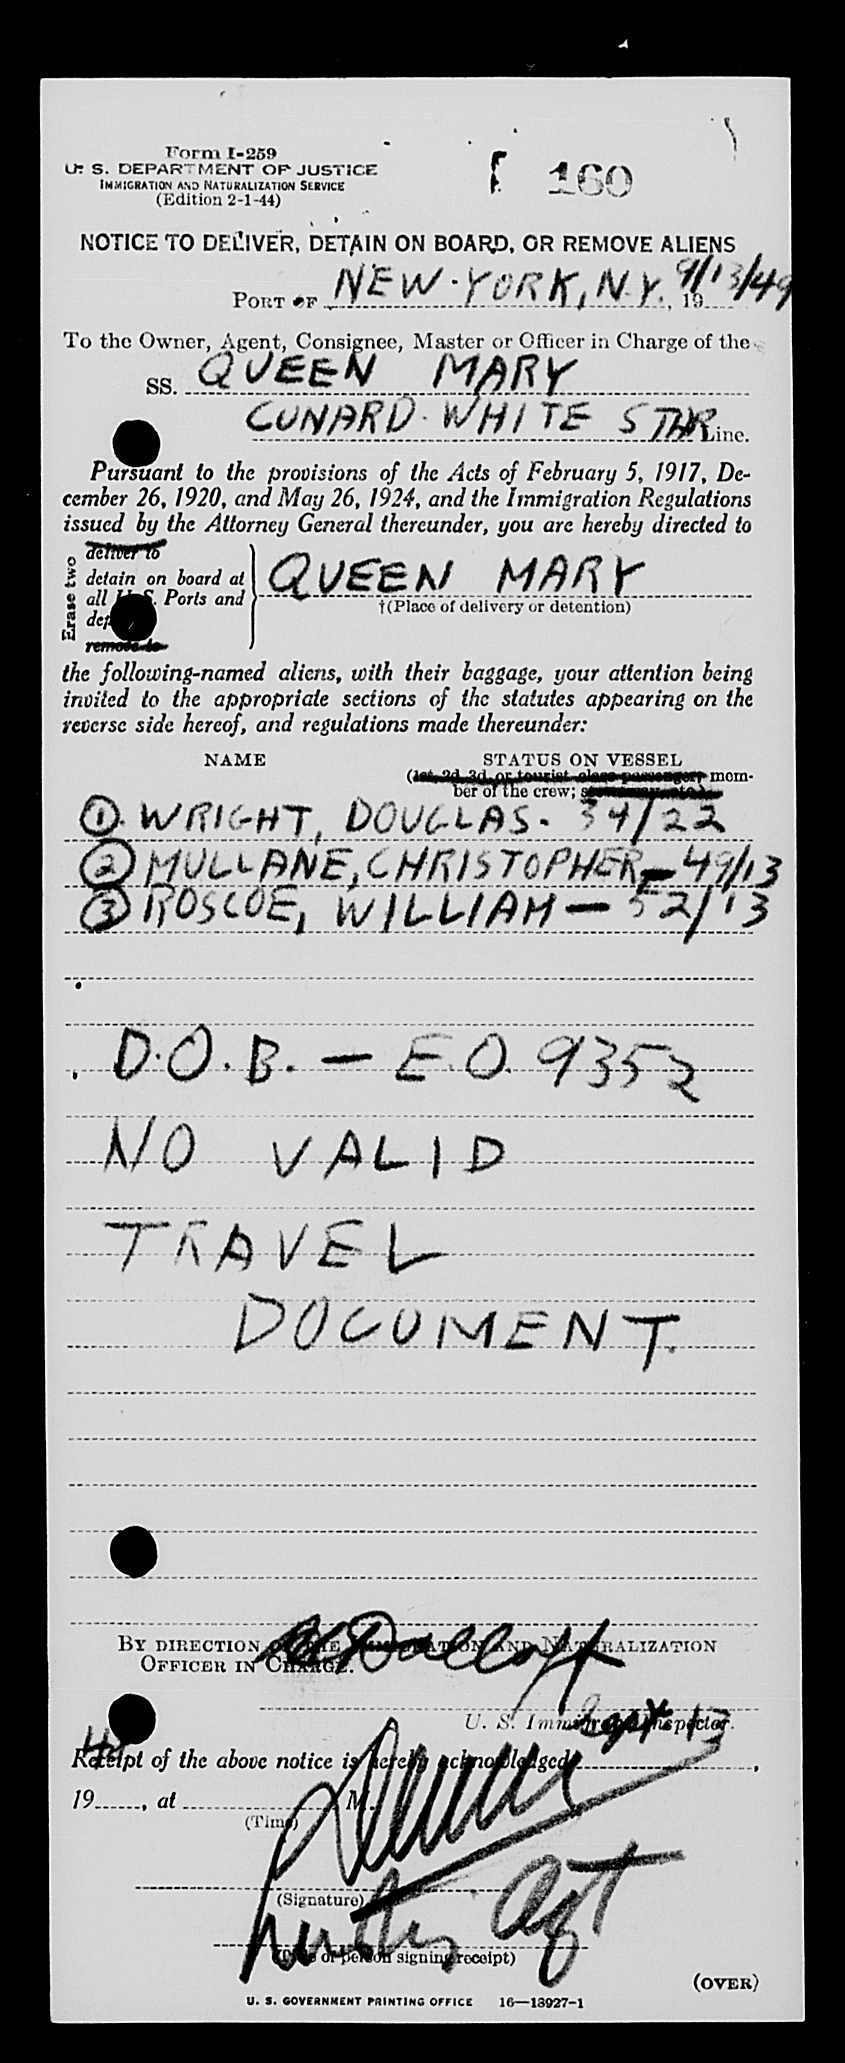 Form I-259
U. S. DEPARTMENT OF JUSTICE
IMMIGRATION AND NATURALIZATION SERVICE
(Edition 2-1-44)
160
NOTICE TO DELIVER, DETAIN ON BOARD, OR REMOVE ALIENS
PORT OF NEW YORK, N.Y. 9/13/49, 19
To the Owner, Agent, Consignee, Master or Officer in Charge of the
SS. QUEEN MARY
CUNARD WHITE STAR Line.
Pursuant to the provisions of the Acts of February 5, 1917, De-
cember 26, 1920, and May 26, 1924, and the Immigration Regulations
issued by the Attorney General thereunder, you are hereby directed to
Erase two
deliver to
detain on board at
all U. S. Ports and
remove to
QUEEN MARY
†(Place of delivery or detention)
the following-named aliens, with their baggage, your attention being
invited to the appropriate sections of the statutes appearing on the
reverse side hereof, and regulations made thereunder:
NAME STATUS ON VESSEL
(1st, 2d, 3d, or tourist class passenger, mem-
ber of the crew;
① WRIGHT, DOUGLAS - 34/22
② MULLANE, CHRISTOPHER - 49/13
③ ROSCOE, WILLIAM - 52/13
D.O.B. - E.O. 9352
NO VALID
TRAVEL
DOCUMENT.
BY DIRECTION OF THE IMMIGRATION AND NATURALIZATION
OFFICER IN CHARGE.
U. S. Immigrant Inspector.
Sept 13
Receipt of the above notice is hereby acknowledged,
19, at M.
(Time)
(Signature)
Agt
(Title of person signing receipt)
(OVER)
U. S. GOVERNMENT PRINTING OFFICE 16—13927-1